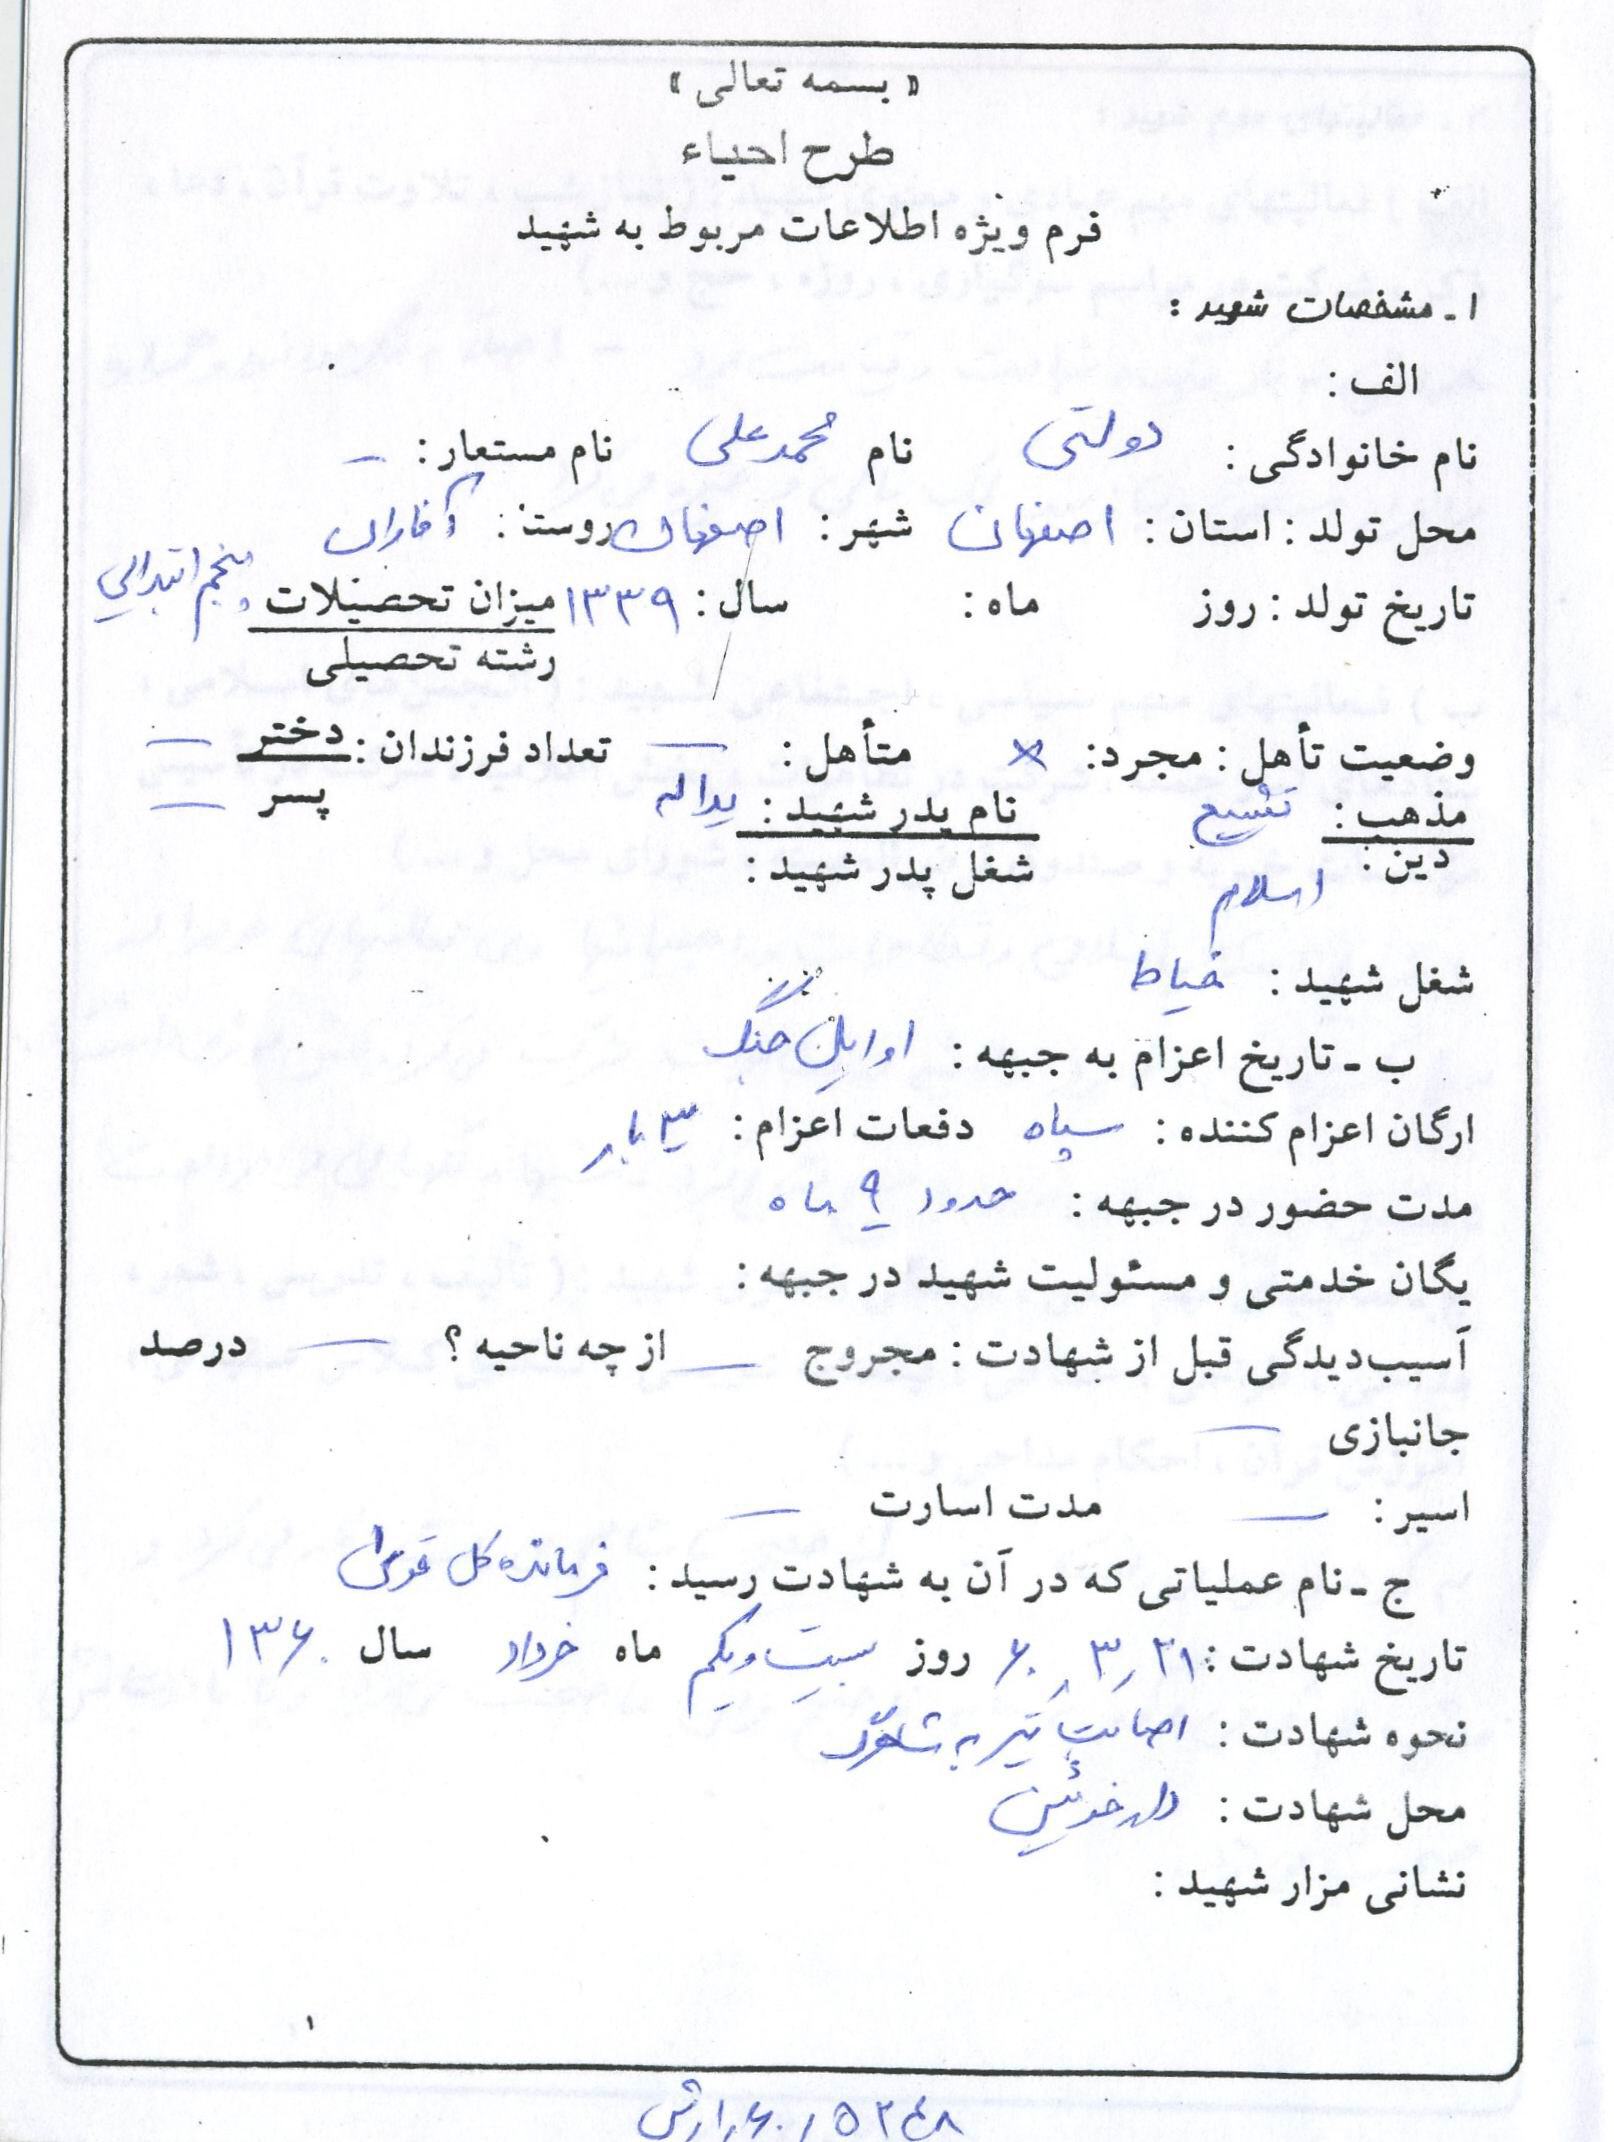 « بسمه تعالی »
طرح احیاء
فرم ویژه اطلاعات مربوط به شهید
۱ ـ مشخصات شهید :
الف :
نام خانوادگی : دولتی نام محمدعلی نام مستعار : –
محل تولد : استان : اصفهان شهر : اصفهان روستا :
تاریخ تولد : روز ماه : سال : ۱۳۳۹ میزان تحصیلات پنجم ابتدایی
رشته تحصیلی
وضعیت تأهل : مجرد : × متأهل : — تعداد فرزندان : دختر —
مذهب : تشیع نام پدر شهید : یداله پسر —
دین : اسلام شغل پدر شهید :
شغل شهید : خیاط
ب ـ تاریخ اعزام به جبهه : اوایل جنگ
ارگان اعزام کننده : سپاه دفعات اعزام : ۳ بار
مدت حضور در جبهه : حدود ۹ ماه
یگان خدمتی و مسئولیت شهید در جبهه :
آسیب‌دیدگی قبل از شهادت : مجروح — از چه ناحیه ؟ — درصد
جانبازی —
اسیر : — مدت اسارت —
ج ـ نام عملیاتی که در آن به شهادت رسید : فرمانده کل قوا
تاریخ شهادت : ۲۱ ر ۳ ر ۶۰ روز بیست و یکم ماه خرداد سال ۱۳۶۰
نحوه شهادت : اصابت تیر به
محل شهادت : دارخوئین
نشانی مزار شهید :
۱